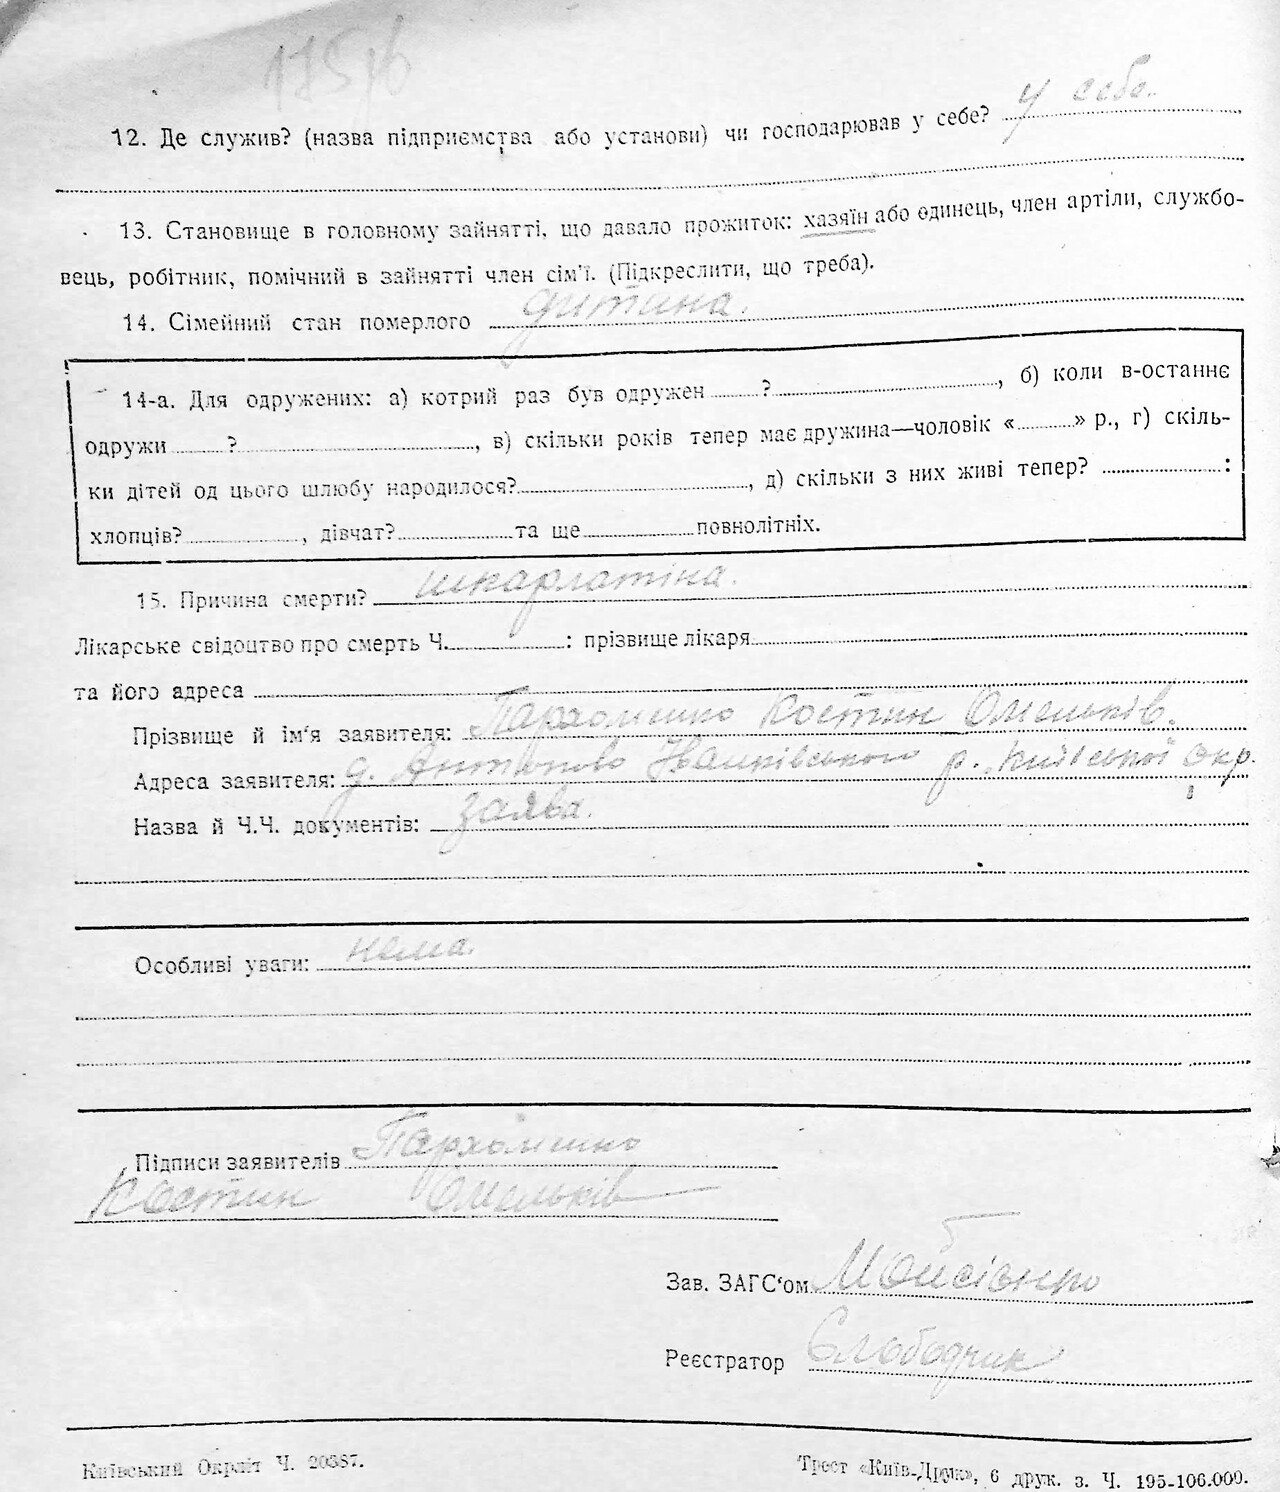 175/6
12. Де служив? (назва підприємства або установи) чи господарював у себе? у себе.
13. Становище в головному зайнятті, що давало прожиток: хазяїн або одинець, член артіли, службо-
вець, робітник, помічний в зайнятті член сім'ї. (Підкреслити, що треба).
14. Сімейний стан померлого дитина.
14-а. Для одружених: а) котрий раз був одружен ......? ......, б) коли в-останнє
одружи ......? ......, в) скільки років тепер має дружина—чоловік «......» р., г) скіль-
ки дітей од цього шлюбу народилося? ......, д) скільки з них живі тепер? ......:
хлопців? ......, дівчат? ...... та ще ...... повнолітніх.
15. Причина смерти? шкарлатіна.
Лікарське свідоцтво про смерть Ч. ......: прізвище лікаря
та його адреса
Прізвище й ім'я заявителя: Пархоменко Костин Омельків.
Адреса заявителя: д. р. Київської окр.
Назва й Ч.Ч. документів: заява.
Особливі уваги: нема.
Підписи заявителів Пархоменко
Костин Омельків
Зав. ЗАГС'ом Мойсієнко
Реєстратор Слободчик
Київський Окрліт Ч. 20387.
Трест «Київ-Друк», 6 друк. з. Ч. 195-106.000.